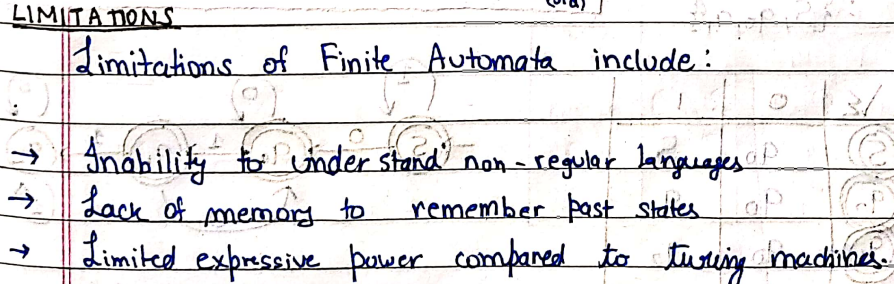 LIMITATIONS
Limitations of Finite Automata include:
→ Inability to understand non-regular languages
→ Lack of memory to remember past states
→ Limited expressive power compared to turing machines.